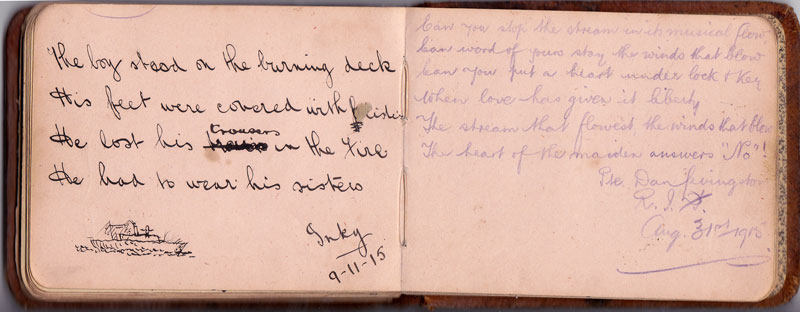 The boy stood on the burning deck
His feet were covered with
He lost his trousers in the Fire
He had to wear his sisters
Inky
9-11-15
Can you stop the stream in its musical flow
Can word of yours stay the winds that blow
Can you put a heart under lock & key
When love has given it liberty
The stream that flowest the winds that blow
The heart of the maiden answers "No"!
Pte. Dan Livingston
R. I.
Aug. 31st 1915